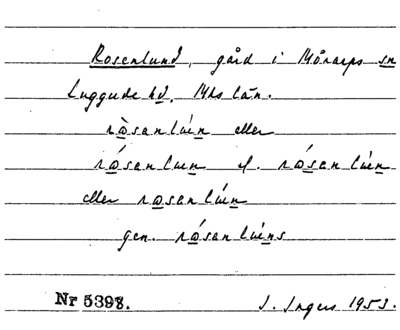 Rosenlund, gård i Mörarps sn
Luggude hd. Mhs län.
ròsanlúɪn eller
rǿsanluɪn el. rǿsanlúɪn
eller røsanlúɪn
gen. rǿsanlúɪns
Nr 5398. I. Ingers 1953.